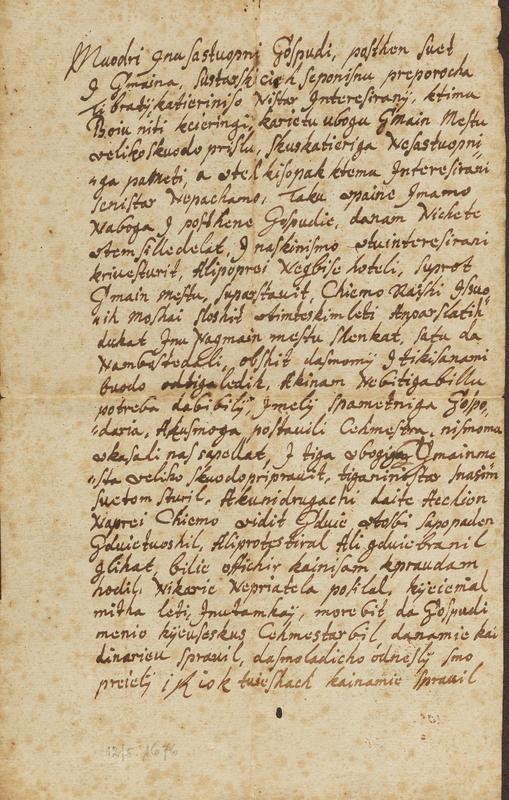 Muodri Jnu sastuopni Gospudi, posthen suet
J Gmaina, sustarski ciek seponisnu preporocha
Ti bratij katieriniso Nistar Interesirani, ktimu
Boiu niti keieringi, karietu ubogu Gmain Mestu
veliko skuodo prislu, skuskatieriga Nesastuopni
ga pameti, a vteh kisopak ktemu Interesirani
senistar Nepachamo, Taku vpaine Jmamo
Naboga J posthene Gospudie, danam Nichete
vtem silledelat, J naskinismo vtuinteresirani
kriuesturit, Alipoprei Negbise hoteli, suprot
Gmain mestu, suparstauit, Chiemo Naishi Jsuo
ih Moshai sloshit vtimteskimleti
dukat Jnu Nagmain mestu shenkat, satu da
obshit dasmomij J tikisanami
buodo ledih, Akinam Nebitigabillu
potreba dabibilij, Jmelij spametniga Gospo
daria, Akusmoga postauili Cehmestra, nismomu
vkasali nas sapellat, J tiga vbogiga Gmainme
sta veliko skuodo pripravit, tigarinistar
suetom sturil, Akunidrugachi daite Aechion
Naprei Chiemo vidit Gduie vtosbi sapopaden
Gduietuoshil, Aliprotestiral Ali gduie branil
glihat, bilie offichir kainisam kpraudam
hodil, Nikarie Nepriatela posilal, kijeiemal
mitha leti, Jnutamkaij, morebit, da Gospudi
menio kijeuseskus Cehmestarbil danamie kai
dinarieu sprauil, dasmoladicho odneslij smo
preielij tuieshach kainamie sprauil
12/5. 1676